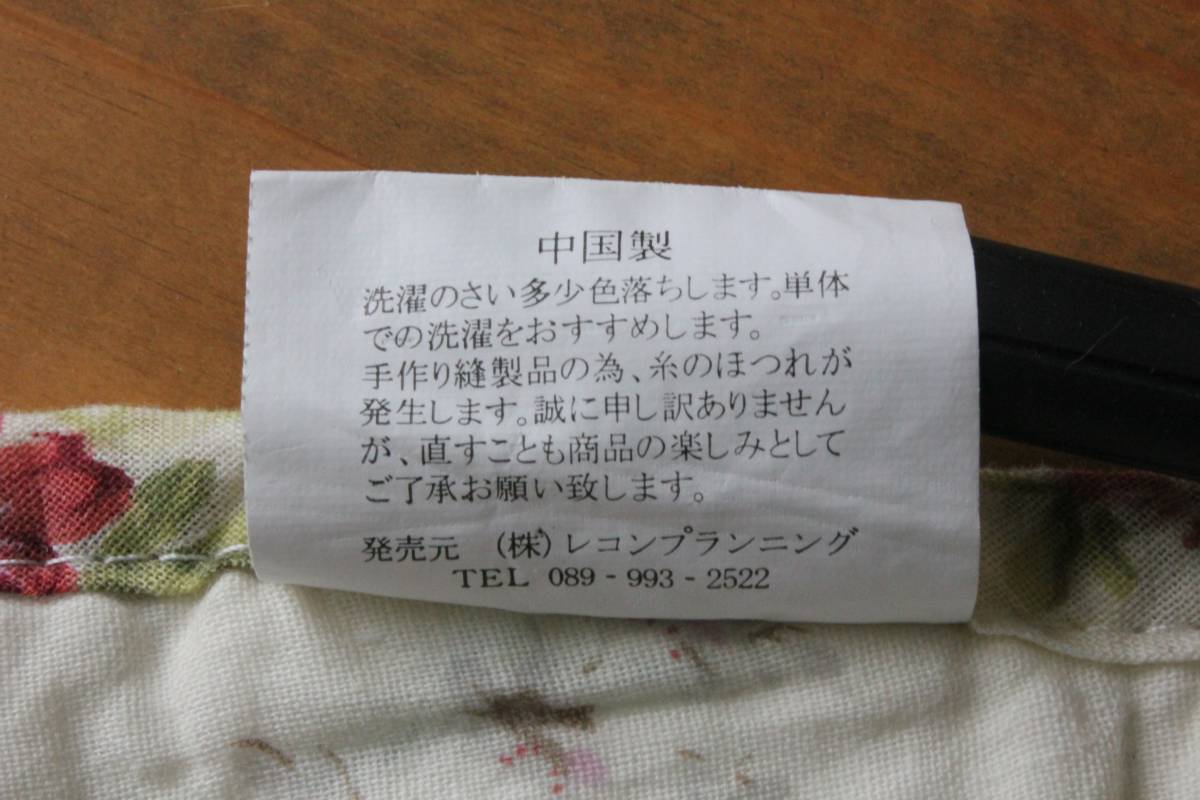 中国製
洗濯のさい多少色落ちします。単体
での洗濯をおすすめします。
手作り縫製品の為、糸のほつれが
発生します。誠に申し訳ありません
が、直すことも商品の楽しみとして
ご了承お願い致します。
発売元 (株)レコンプランニング
TEL 089-993-2522